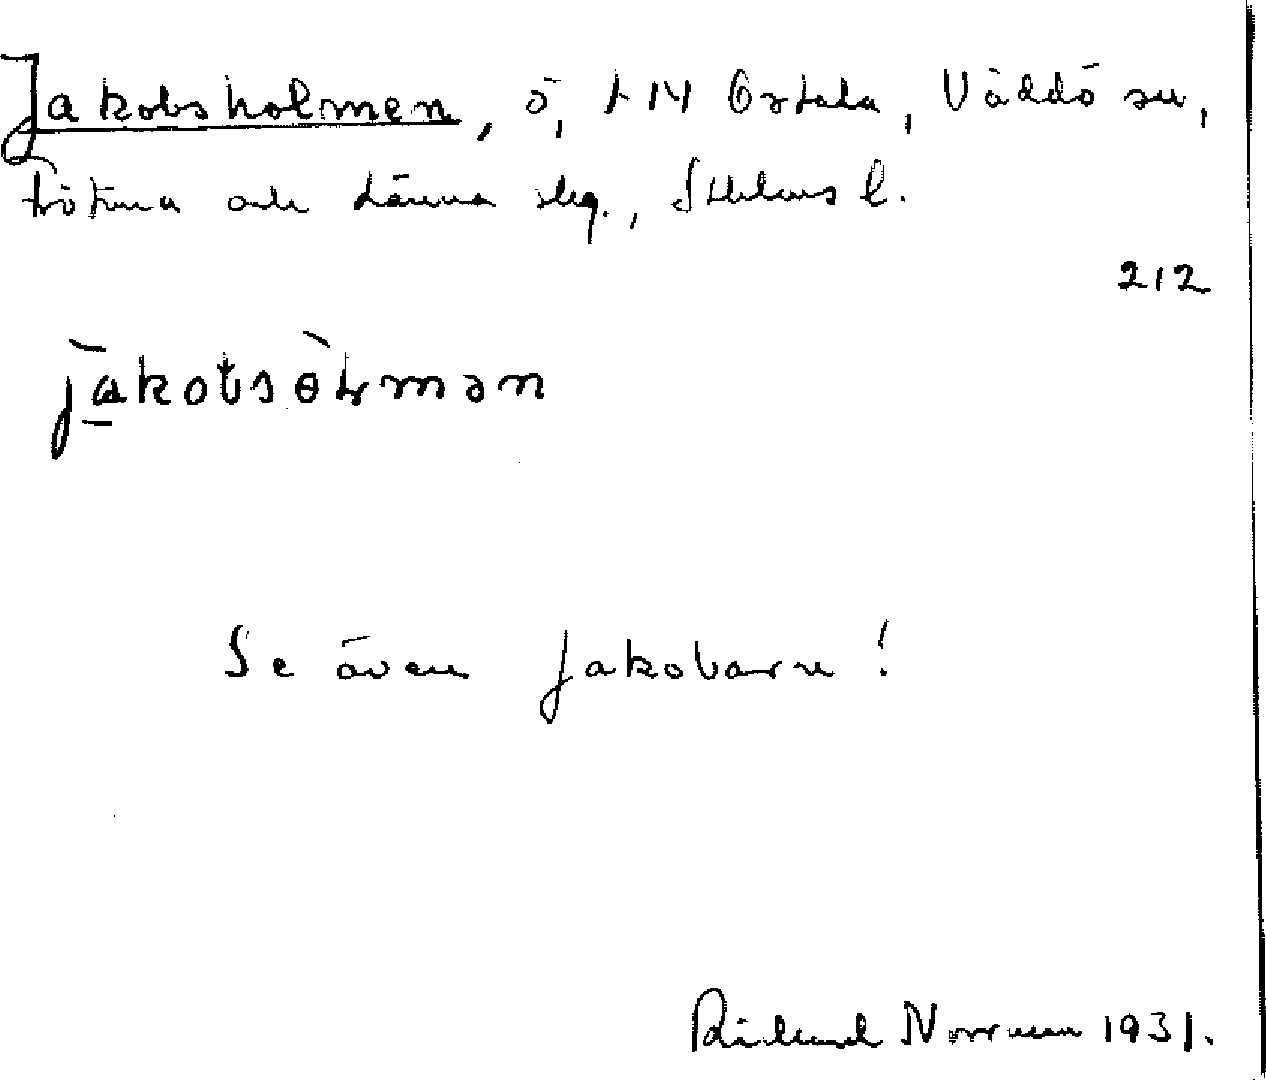 Jakobsholmen, ö, t N Ortala, Väddö sn,
Frötuna och Länna skg., Sthlms l.
212
jakotsòlmən
Se även Jakobarn!
Rickard Norrman 1931.